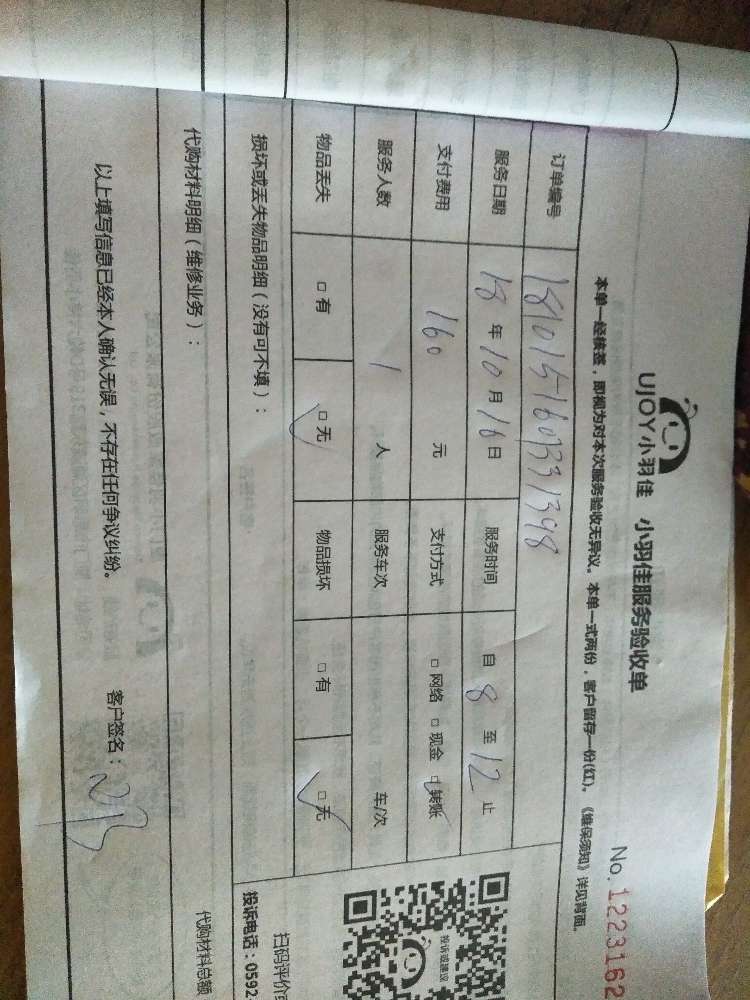 UJOY小羽佳 小羽佳服务验收单 No.1223162
本单一经核签，即视为对本次服务验收无异议。本单一式两份，客户留存一份(红)。《维保须知》详见背面。
订单编号 181015160931398
服务日期 18年10月16日 服务时间 自8至12止
支付费用 160元 支付方式 □网络 □现金 □转账
服务人数 1人 服务车次 车/次
物品丢失 □有 □无 物品损坏 □有 □无
损坏或丢失物品明细（没有可不填）：
代购材料明细（维修业务）： 代购材料总额
以上填写信息已经本人确认无误，不存在任何争议纠纷。 客户签名：
投诉或建议
扫码评价
投诉电话：0592